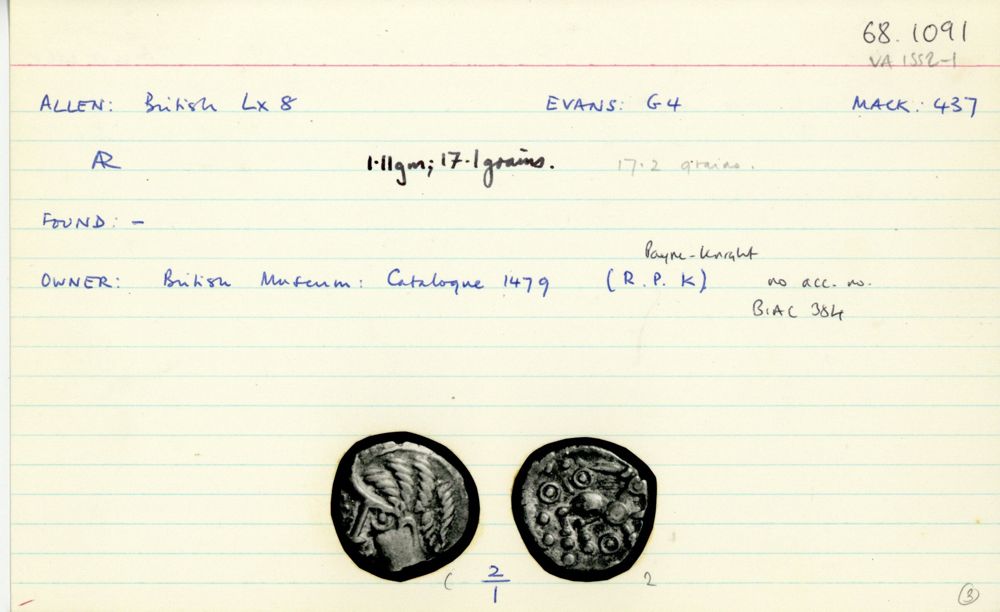 68.1091
VA 1552-1
ALLEN: British Lx 8 EVANS: G4 MACK: 437
AR 1.11gm; 17.1 grains. 17.2 grains.
FOUND: -
Payne-Knight
OWNER: British Museum: Catalogue 1479 (R.P.K) no acc. no.
BIAC 384
( 2/1 2
3